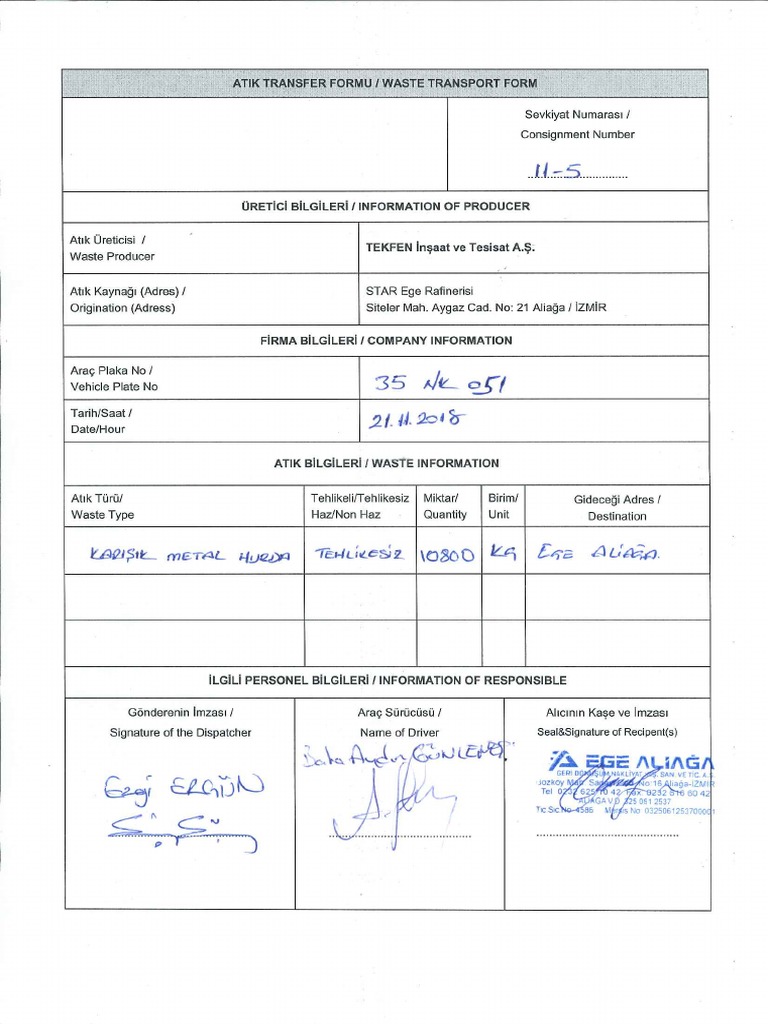 ATIK TRANSFER FORMU / WASTE TRANSPORT FORM
Sevkiyat Numarası /
Consignment Number
11-5
ÜRETİCİ BİLGİLERİ / INFORMATION OF PRODUCER
Atık Üreticisi /
Waste Producer
TEKFEN İnşaat ve Tesisat A.Ş.
Atık Kaynağı (Adres) /
Origination (Adress)
STAR Ege Rafinerisi
Siteler Mah. Aygaz Cad. No: 21 Aliağa / İZMİR
FİRMA BİLGİLERİ / COMPANY INFORMATION
Araç Plaka No /
Vehicle Plate No
35 NK 051
Tarih/Saat /
Date/Hour
21.11.2018
ATIK BİLGİLERİ / WASTE INFORMATION
Atık Türü/
Waste Type
Tehlikeli/Tehlikesiz
Haz/Non Haz
Miktar/
Quantity
Birim/
Unit
Gideceği Adres /
Destination
KARIŞIK METAL HURDA TEHLİKESİZ 10800 KG EGE ALİAĞA.
İLGİLİ PERSONEL BİLGİLERİ / INFORMATION OF RESPONSIBLE
Gönderenin İmzası /
Signature of the Dispatcher
Ezgi ERGÜN
Araç Sürücüsü /
Name of Driver
Alıcının Kaşe ve İmzası
Seal&Signature of Recipent(s)
EGE ALİAĞA
GERİ DÖNÜŞÜM NAKLİYAT SAN. VE TİC. A.Ş.
No:16 Aliağa-İZMİR
Tel 0232 625 10 42 Fax: 0232 616 60 42
ALİAĞA V.D. 325 061 2537
Tic.Sic.No 4586 Mersis No: 0325061253700001